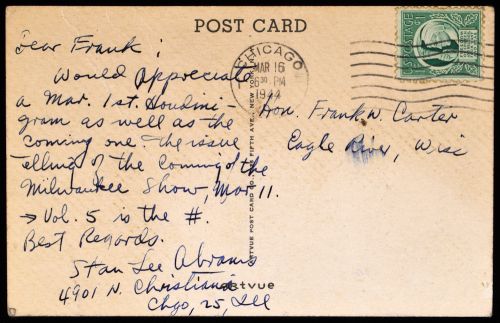 POST CARD
Dear Frank;
Would appreciate
a Mar. 1st. Houdini-
gram as well as the
coming one - The issue
telling of the Coming of the
Milwaukee Show, Mar 11.
→ Vol. 5 is the #.
Best Regards.
Stan Lee Abrams
4901 N. Christiana
Chgo, 25, Ill
CHICAGO
MAR 16
6 30 PM
1944
Hon. Frank W. Carter
Eagle River, Wisc
ARTVUE POST CARD CO. FIFTH AVE., NEW YORK
artvue